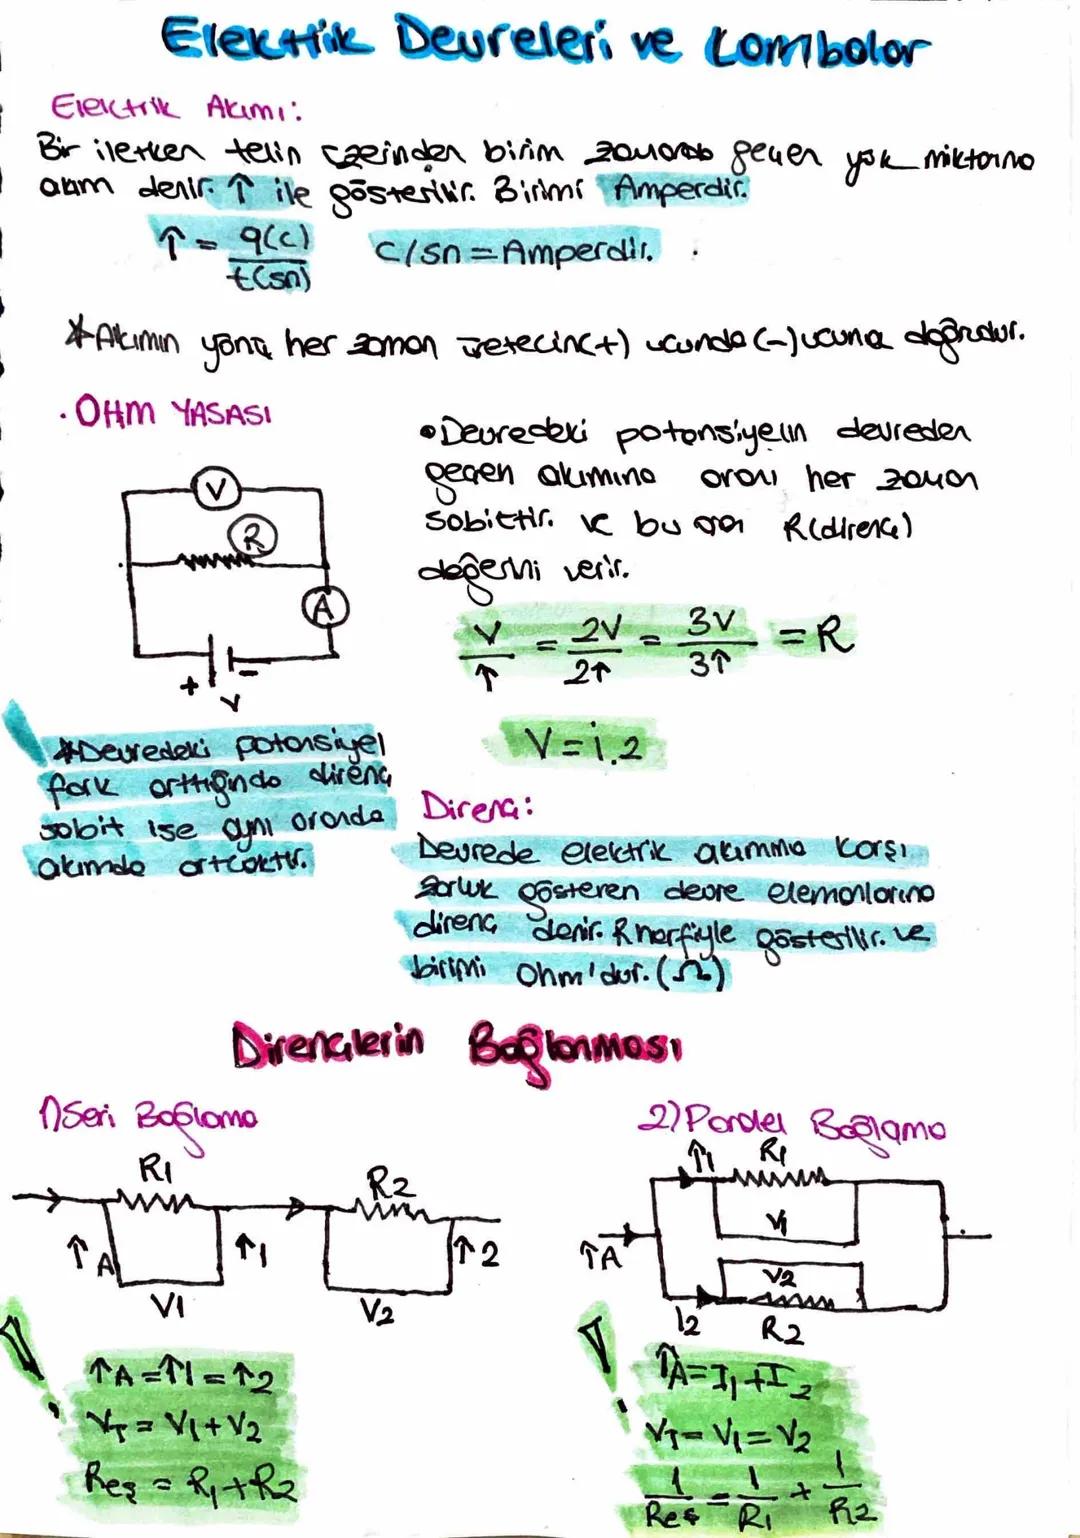 Elektrik Devreleri ve Lambalar
Elektrik Akımı:
Bir iletken telin üzerinden birim zamanda geçen yük miktarına
akım denir. ↑ ile gösterilir. Birimi Amperdir.
↑ = q(c) / t(sn)
C/sn = Amperdir.
*Akımın yönü her zaman üretecin(+) ucunda (-) ucuna doğrudur.
· OHM YASASI
V
R
A
+ -
V
• Devredeki potansiyelin devreden
geçen akımına oranı her zaman
sabittir. ve bu oran R(direnç)
değerini verir.
V/↑ = 2V/2↑ = 3V/3↑ = R
V = i.2
*Devredeki potansiyel
fark arttığında direnç
sabit ise aynı oranda
akımda artcaktır.
Direnç:
Devrede elektrik akımına karşı
zorluk gösteren devre elemanlarına
direnç denir. R harfiyle gösterilir. ve
birimi Ohm'dur. (Ω)
Dirençlerin Bağlanması
1) Seri Bağlama
R1
R2
↑A
↑1
↑2
V1
V2
↑A = ↑1 = ↑2
VT = V1 + V2
Reş = R1 + R2
2) Paralel Bağlama
↑1
R1
V1
↑A
V2
I2
R2
↑A = I1 + I2
VT = V1 = V2
1/Reş = 1/R1 + 1/R2